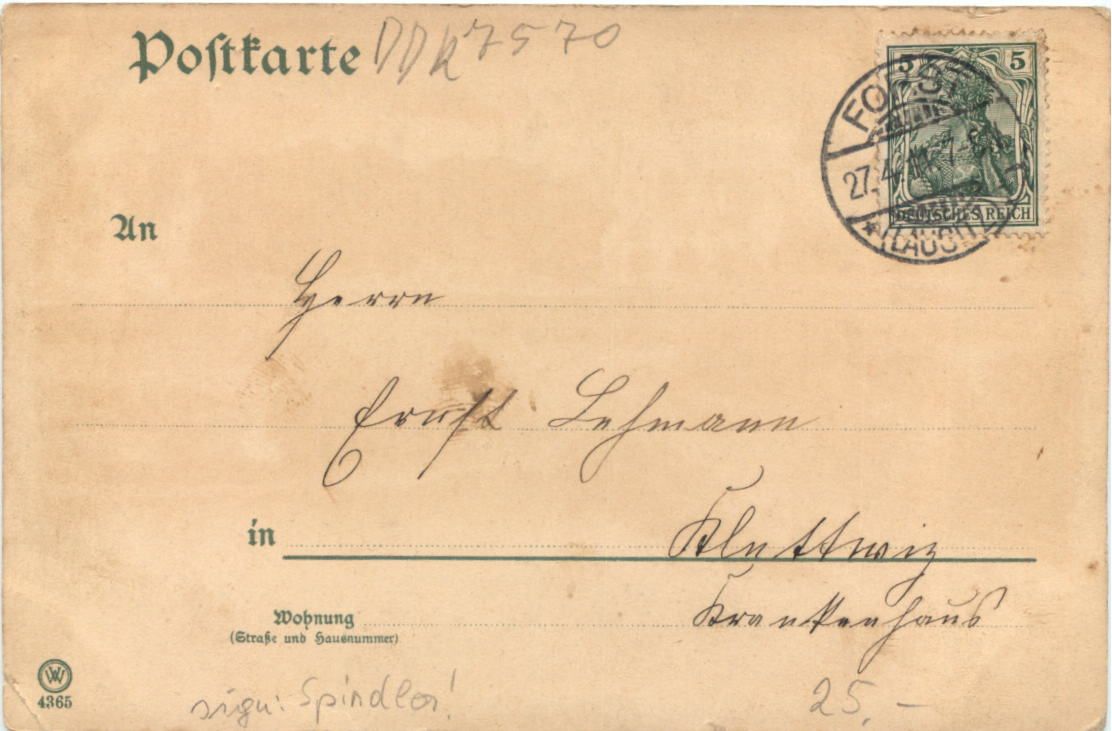 Postkarte DDK 7570
5 5
FORST
27.4.
DEUTSCHES REICH
(LAUSITZ)
An
Herrn
Ernst Lehmann
in Klettwiz
Wohnung Krankenhaus
(Straße und Hausnummer)
W
4365
sign: Spindler!
25,-